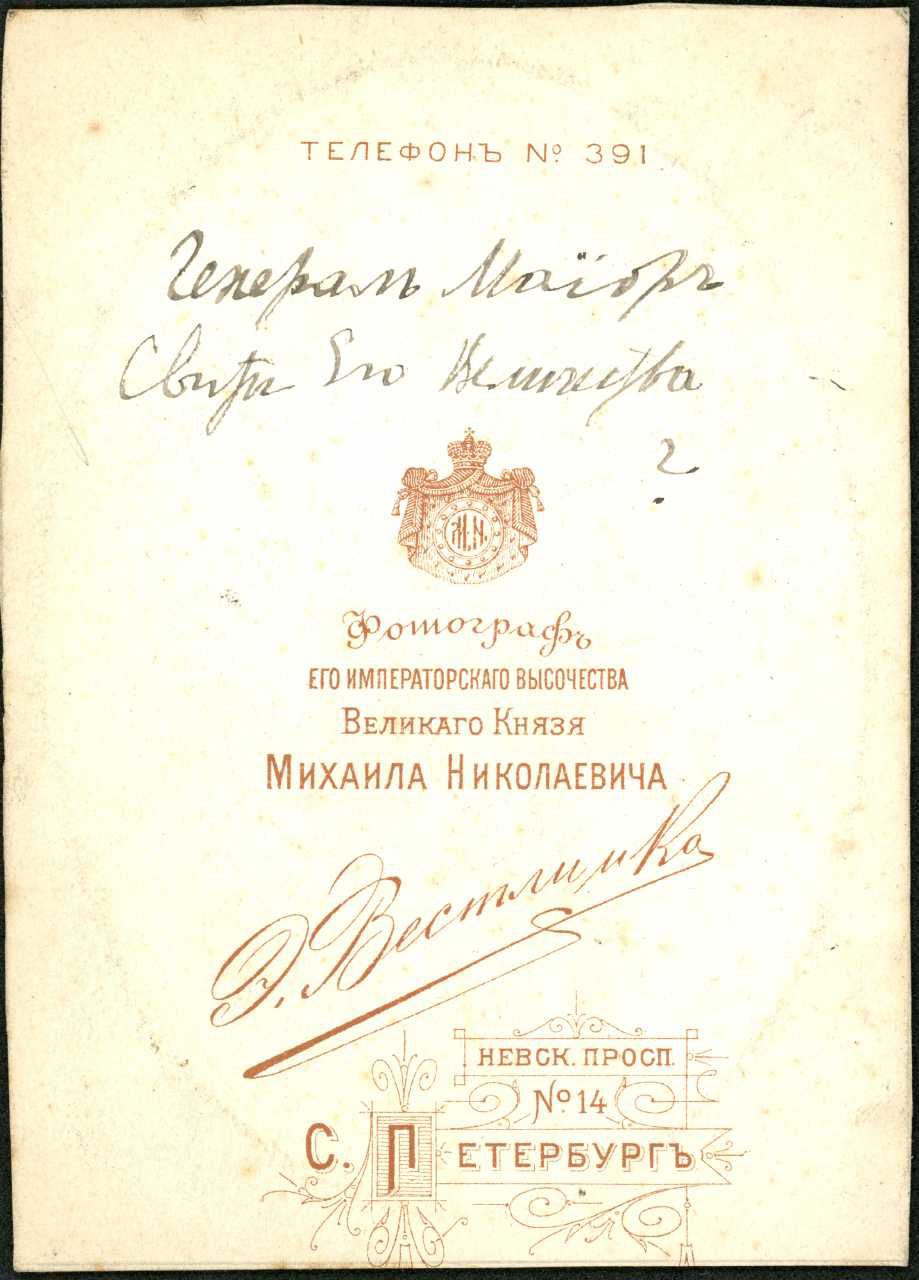 ТЕЛЕФОНЪ № 391
Генералъ Маіоръ
Свиты Его Величества
?
М.N.
Фотографъ
ЕГО ИМПЕРАТОРСКАГО ВЫСОЧЕСТВА
ВЕЛИКАГО КНЯЗЯ
МИХАИЛА НИКОЛАЕВИЧА
Э. Вестлишка
НЕВСК. ПРОСП.
№ 14
С. ПЕТЕРБУРГЪ